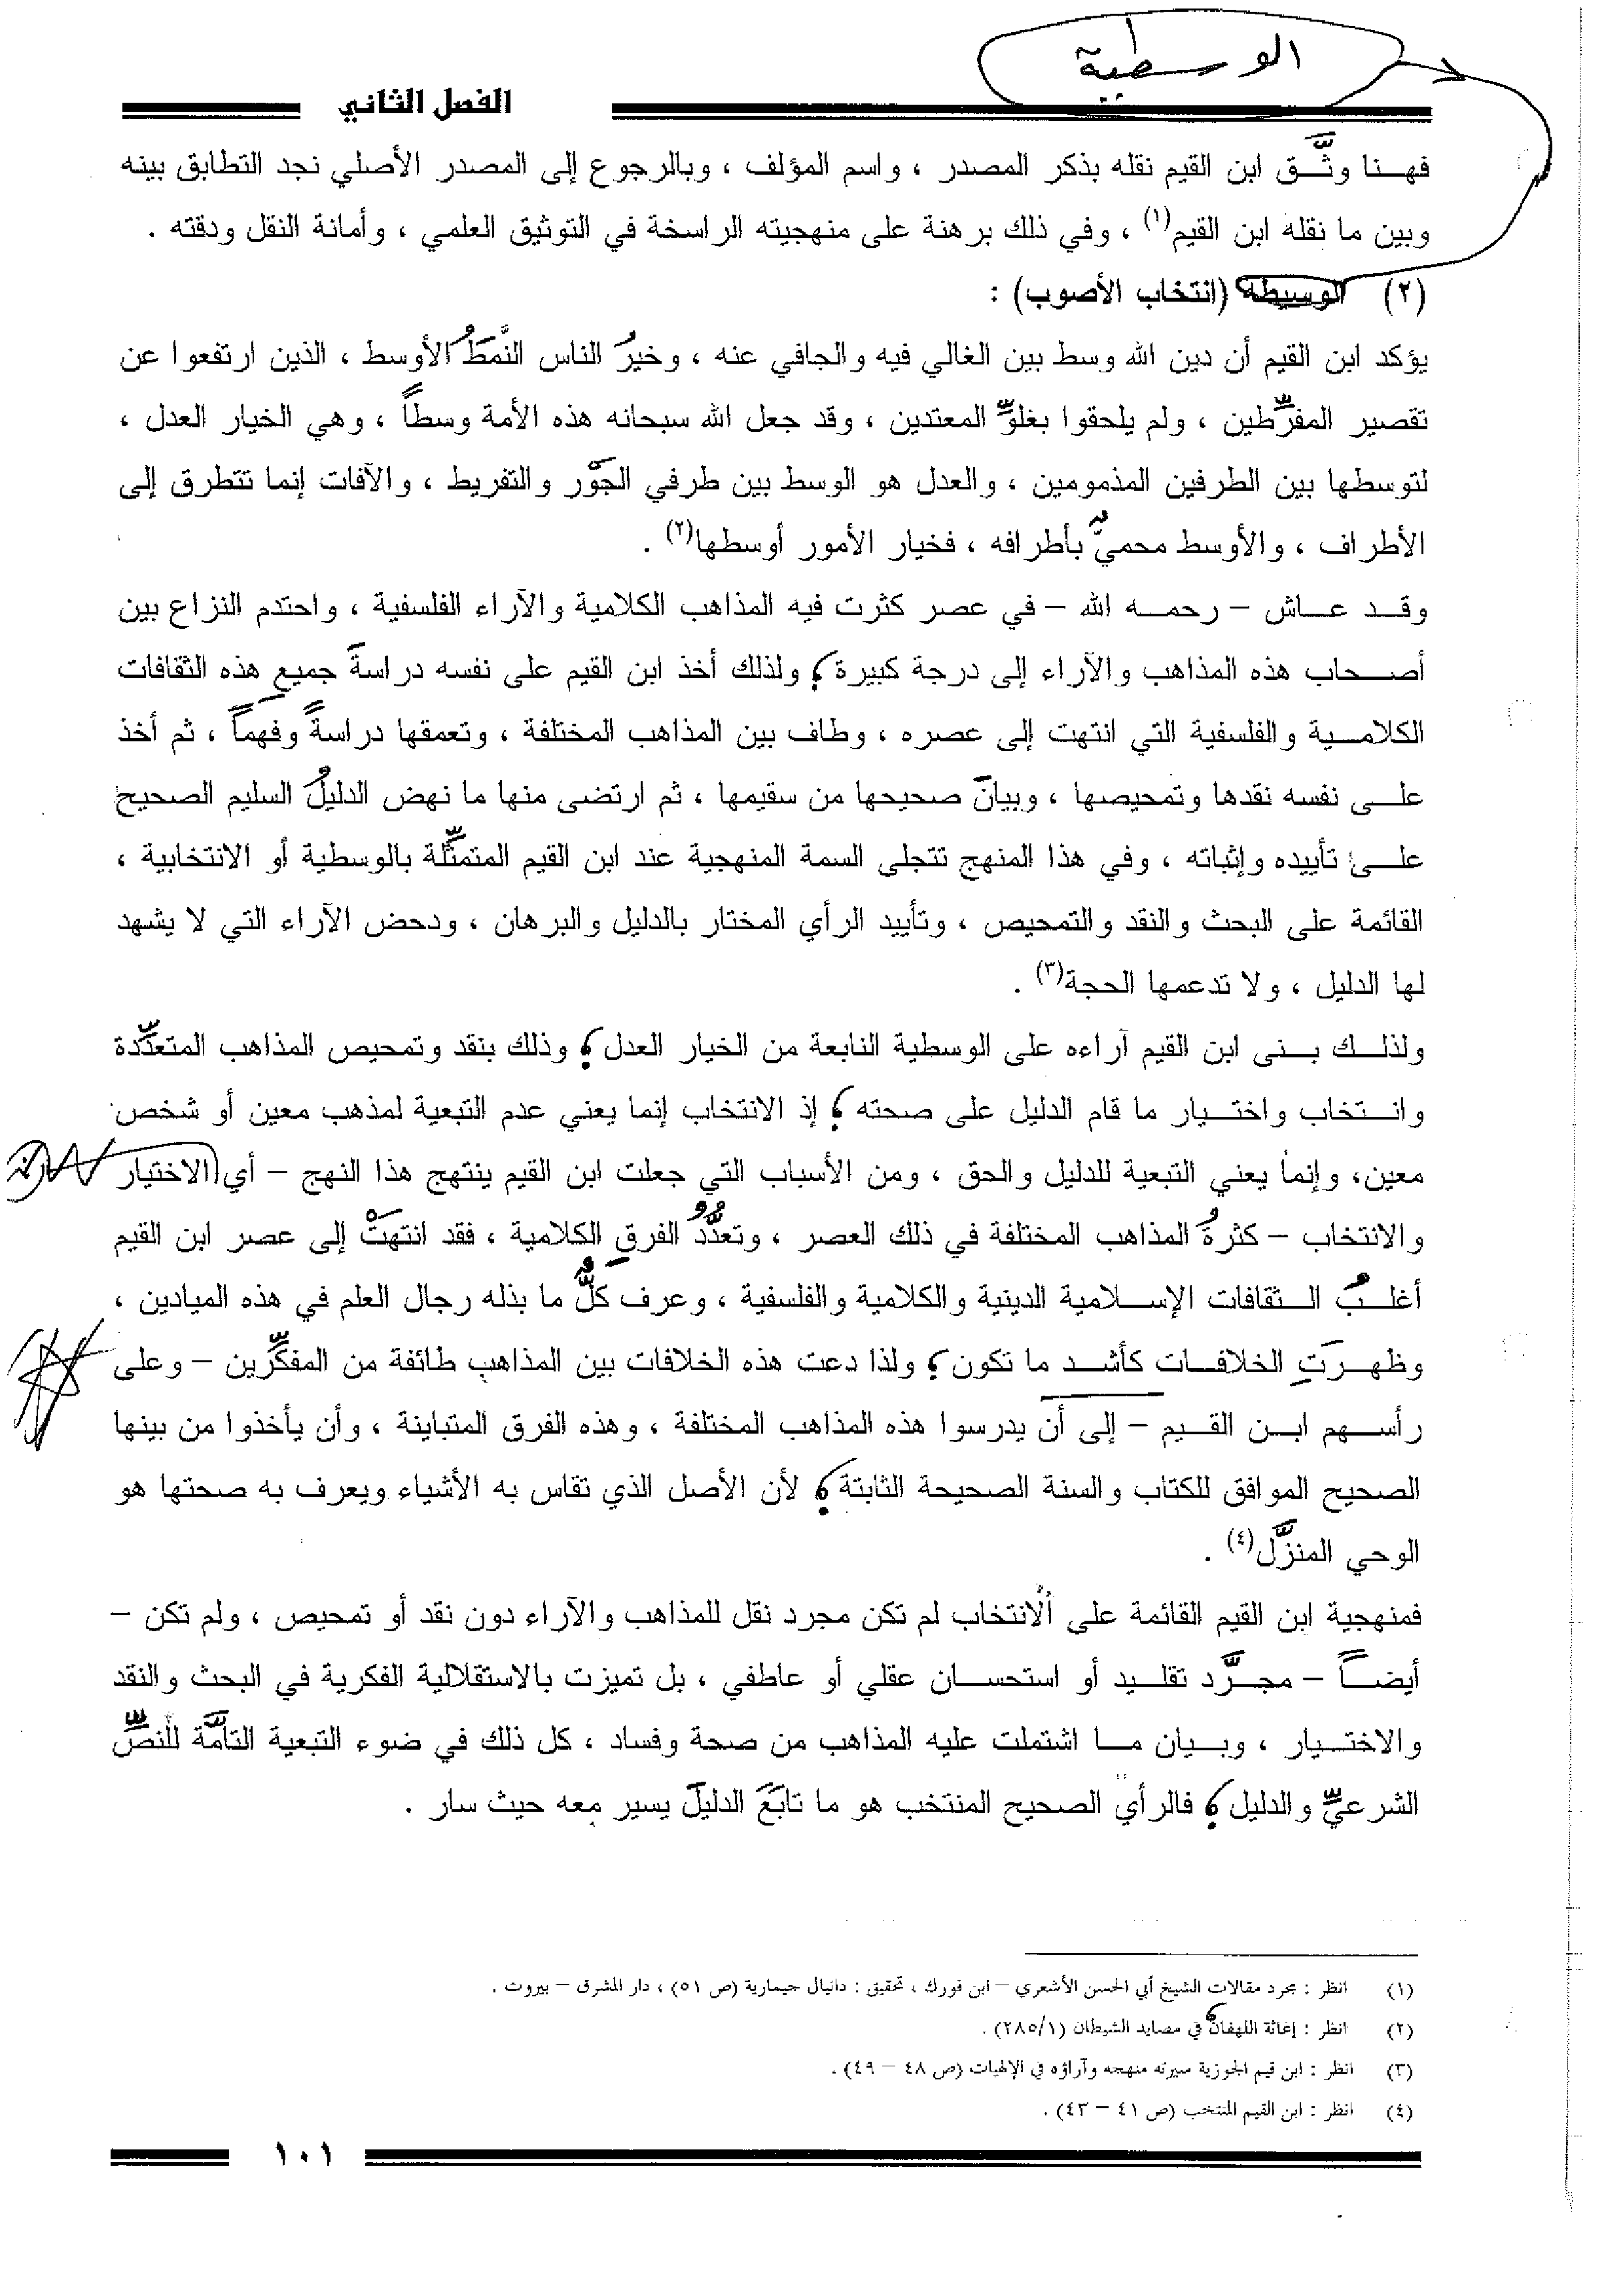 الوسطية
الفصل الثاني
فهنا وثَّق ابن القيم نقله بذكر المصدر ، واسم المؤلف ، وبالرجوع إلى المصدر الأصلي نجد التطابق بينه
وبين ما نقله ابن القيم(١) ، وفي ذلك برهنة على منهجيته الراسخة في التوثيق العلمي ، وأمانة النقل ودقته .
(٢) الوسيطة (انتخاب الأصوب) :
يؤكد ابن القيم أن دين الله وسط بين الغالي فيه والجافي عنه ، وخيرُ الناس النَّمطُ الأوسط ، الذين ارتفعوا عن
تقصير المفرِّطين ، ولم يلحقوا بغلوِّ المعتدين ، وقد جعل الله سبحانه هذه الأمة وسطاً ، وهي الخيار العدل ،
لتوسطها بين الطرفين المذمومين ، والعدل هو الوسط بين طرفي الجَوْر والتفريط ، والآفات إنما تتطرق إلى
الأطراف ، والأوسط محميٌّ بأطرافه ، فخيار الأمور أوسطها(٢) .
وقد عاش – رحمه الله – في عصر كثرت فيه المذاهب الكلامية والآراء الفلسفية ، واحتدم النزاع بين
أصحاب هذه المذاهب والآراء إلى درجة كبيرة ؛ ولذلك أخذ ابن القيم على نفسه دراسةَ جميعِ هذه الثقافات
الكلامية والفلسفية التي انتهت إلى عصره ، وطاف بين المذاهب المختلفة ، وتعمقها دراسةً وفهماً ، ثم أخذ
على نفسه نقدها وتمحيصها ، وبيانَ صحيحها من سقيمها ، ثم ارتضى منها ما نهض الدليلُ السليم الصحيح
على تأييده وإثباته ، وفي هذا المنهج تتجلى السمة المنهجية عند ابن القيم المتمثِّلة بالوسطية أو الانتخابية ،
القائمة على البحث والنقد والتمحيص ، وتأييد الرأي المختار بالدليل والبرهان ، ودحض الآراء التي لا يشهد
لها الدليل ، ولا تدعمها الحجة(٣) .
ولذلك بنى ابن القيم آراءه على الوسطية النابعة من الخيار العدل ؛ وذلك بنقد وتمحيص المذاهب المتعدِّدة
وانتخاب واختيار ما قام الدليل على صحته ؛ إذ الانتخاب إنما يعني عدم التبعية لمذهب معين أو شخص
معين، وإنما يعني التبعية للدليل والحق ، ومن الأسباب التي جعلت ابن القيم ينتهج هذا النهج – أي الاختيار
والانتخاب – كثرةُ المذاهب المختلفة في ذلك العصر ، وتعدُّدُ الفرقِ الكلامية ، فقد انتهتْ إلى عصر ابن القيم
أغلبُ الثقافات الإسلامية الدينية والكلامية والفلسفية ، وعرف كلُّ ما بذله رجال العلم في هذه الميادين ،
وظهرَتِ الخلافات كأشد ما تكون ؛ ولذا دعت هذه الخلافات بين المذاهب طائفة من المفكِّرين – وعلى
رأسهم ابن القيم – إلى أن يدرسوا هذه المذاهب المختلفة ، وهذه الفرق المتباينة ، وأن يأخذوا من بينها
الصحيح الموافق للكتاب والسنة الصحيحة الثابتة ؛ لأن الأصل الذي تقاس به الأشياء ويعرف به صحتها هو
الوحي المنزَّل(٤) .
فمنهجية ابن القيم القائمة على الانتخاب لم تكن مجرد نقل للمذاهب والآراء دون نقد أو تمحيص ، ولم تكن –
أيضاً – مجرَّد تقليد أو استحسان عقلي أو عاطفي ، بل تميزت بالاستقلالية الفكرية في البحث والنقد
والاختيار ، وبيان ما اشتملت عليه المذاهب من صحة وفساد ، كل ذلك في ضوء التبعية التامَّة للنصِّ
الشرعيِّ والدليل ؛ فالرأي الصحيح المنتخب هو ما تابَعَ الدليلَ يسير معه حيث سار .
(١) انظر : مجرد مقالات الشيخ أبي الحسن الأشعري – ابن فورك ، تحقيق : دانيال جيمارية (ص ٥١) ، دار المشرق – بيروت .
(٢) انظر : إغاثة اللهفان في مصايد الشيطان (٢٨٥/١) .
(٣) انظر : ابن قيم الجوزية سيرته منهجه وآراؤه في الإلهيات (ص ٤٨ – ٤٩) .
(٤) انظر : ابن القيم المنتخب (ص ٤١ – ٤٣) .
١٠١